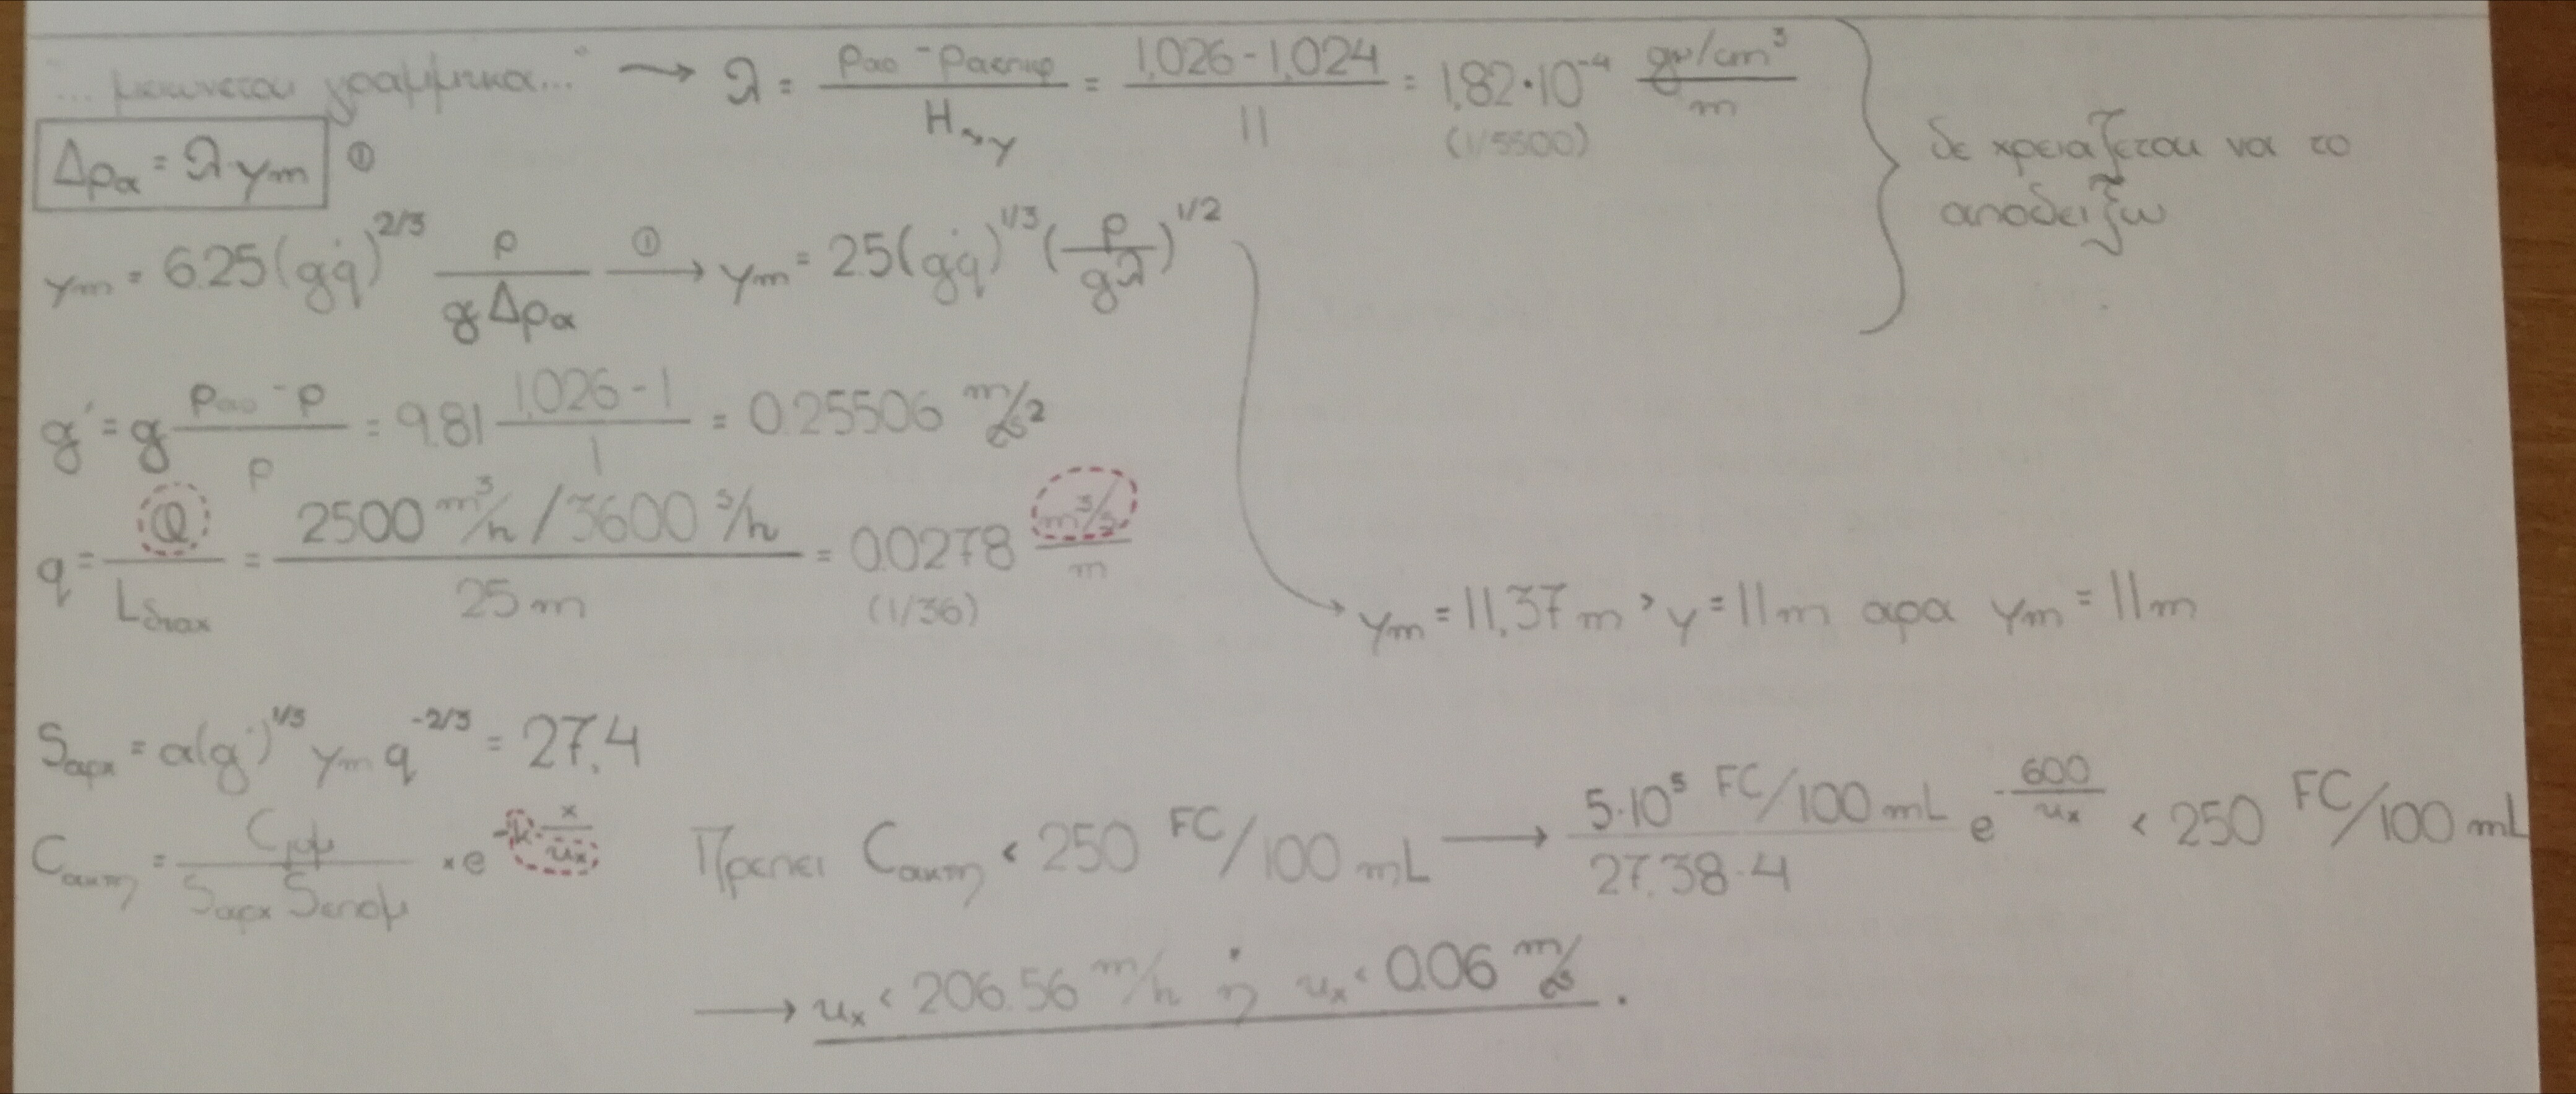 "... μειώνεται γραμμικα..." → λ = (ρ_αο - ρ_αεπιφ) / H_αγ = (1.026 - 1.024) / 11 = 1.82·10^-4 (gr/cm^3)/m
(1/5500)
Δρ_α = λ y_m ①
δε χρειαζεται να το
αποδειξω
y_m = 6.25 (g'q)^2/3 ρ / (g Δρ_α) —①→ y_m = 2.5 (g'q)^1/3 (ρ / (gλ))^1/2
g' = g (ρ_αο - ρ) / ρ = 9.81 (1.026 - 1) / 1 = 0.25506 m/s^2
q = Q / L_διαχ = (2500 m^3/h / 3600 s/h) / 25 m = 0.0278 (m^3/s)/m
(1/36)
y_m = 11.37 m > y = 11 m αρα y_m = 11 m
S_αρχ = α(g')^1/3 y_m q^-2/3 = 27.4
C_ακτη = C_ρυπ / (S_αρχ S_επομ) × e^(-k·x/u_x) Πρεπει C_ακτη < 250 FC/100 mL → (5·10^5 FC/100 mL) / (27.38·4) e^(-600/u_x) < 250 FC/100 mL
→ u_x < 206.56 m/h ή u_x < 0.06 m/s.